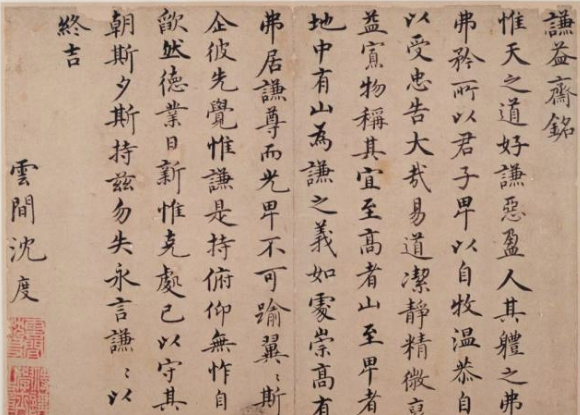 謙益齋銘
惟天之道好謙惡盈人其體之弗
弗矜所以君子卑以自牧溫恭自
以受忠告大哉易道潔靜精微裒
益寡物稱其宜至高者山至卑者
地中有山為謙之義如處崇高有
弗居謙尊而光卑不可踰翼〻斯
企彼先覺惟謙是持俯仰無怍自
欿然德業日新惟克處己以守其
朝斯夕斯持茲勿失永言謙〻以
終吉
雲間沈度